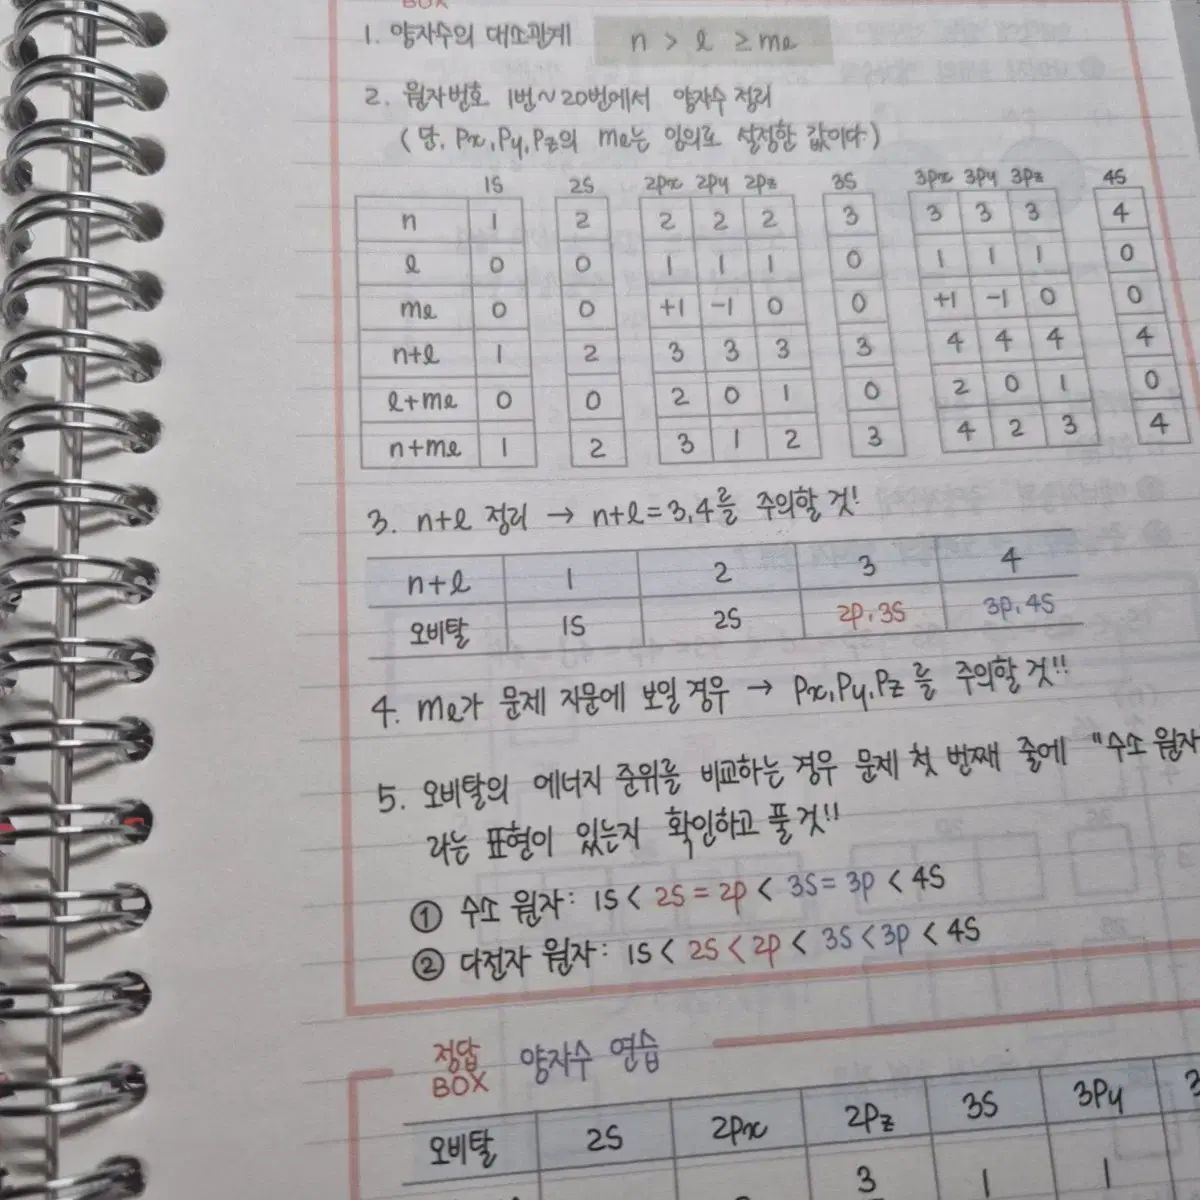 BOX
1. 양자수의 대소관계 n > l ≥ ml
2. 원자번호 1번~20번에서 양자수 정리
(단, Px, Py, Pz의 ml는 임의로 설정한 값이다)
1S 2S 2Px 2Py 2Pz 3S 3Px 3Py 3Pz 4S
n 1 2 2 2 2 3 3 3 3 4
l 0 0 1 1 1 0 1 1 1 0
ml 0 0 +1 -1 0 0 +1 -1 0 0
n+l 1 2 3 3 3 3 4 4 4 4
l+ml 0 0 2 0 1 0 2 0 1 0
n+ml 1 2 3 1 2 3 4 2 3 4
3. n+l 정리 → n+l=3,4를 주의할 것!
n+l 1 2 3 4
오비탈 1S 2S 2P, 3S 3P, 4S
4. ml가 문제 지문에 보일 경우 → Px, Py, Pz를 주의할 것!!
5. 오비탈의 에너지 준위를 비교하는 경우 문제 첫 번째 줄에 "수소 원자
라는 표현이 있는지 확인하고 풀 것!!
① 수소 원자: 1S < 2S = 2P < 3S = 3P < 4S
② 다전자 원자: 1S < 2S < 2P < 3S < 3P < 4S
정답 BOX 양자수 연습
오비탈 2S 2Px 2Pz 3S 3Py 3
3 1 1